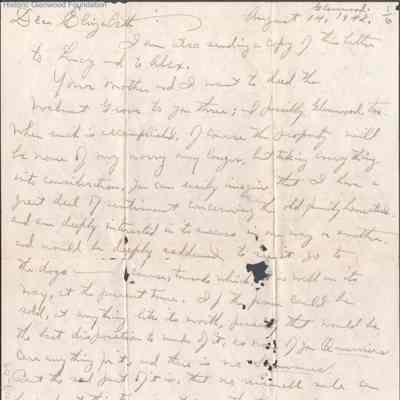 Historic Glenwood Foundation
Glenwood. 1/6
Dear Elizabeth: August 14, 1942.
I am also sending a copy of this letter
to Lucy and to Alex.
Your mother and I want to deed the
Walnut Grove to you three; and possibly Glenwood, too.
When such is accomplished, of course the property will
be none of my worry any longer, but taking everything
into consideration, you can easily imagine that I have a
great deal of sentiment concerning the old family homestead.
and am deeply interested in its success in one way or another.
and would be deeply saddened to see it go to
the dogs towards which is well on its
way, at the present time. If the place could be
sold, at anything like its worth, that would be
the best disposition to make of it, as none of you
care anything for it, and there is no
But the sad part of it is, that no sale can